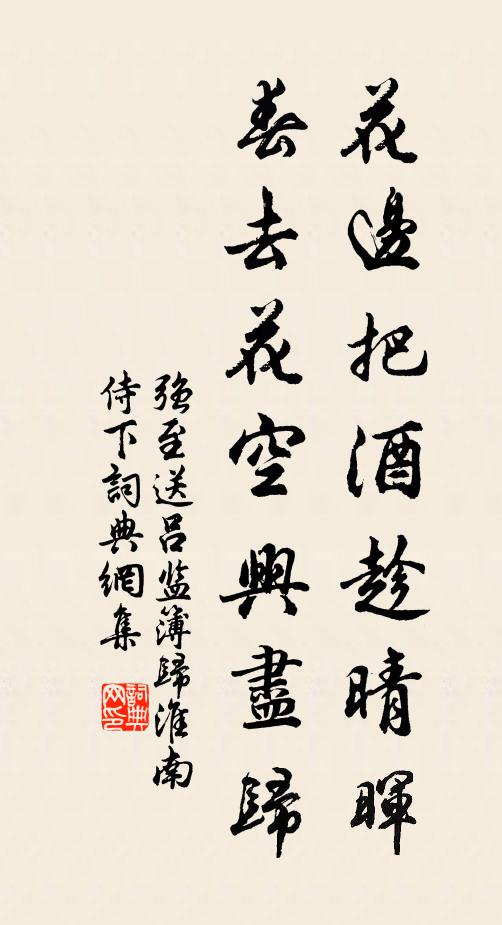 花邊把酒趁晴暉
春去花空興盡歸
強至送呂监簿歸淮南
侍下詞典網集
詞典网印